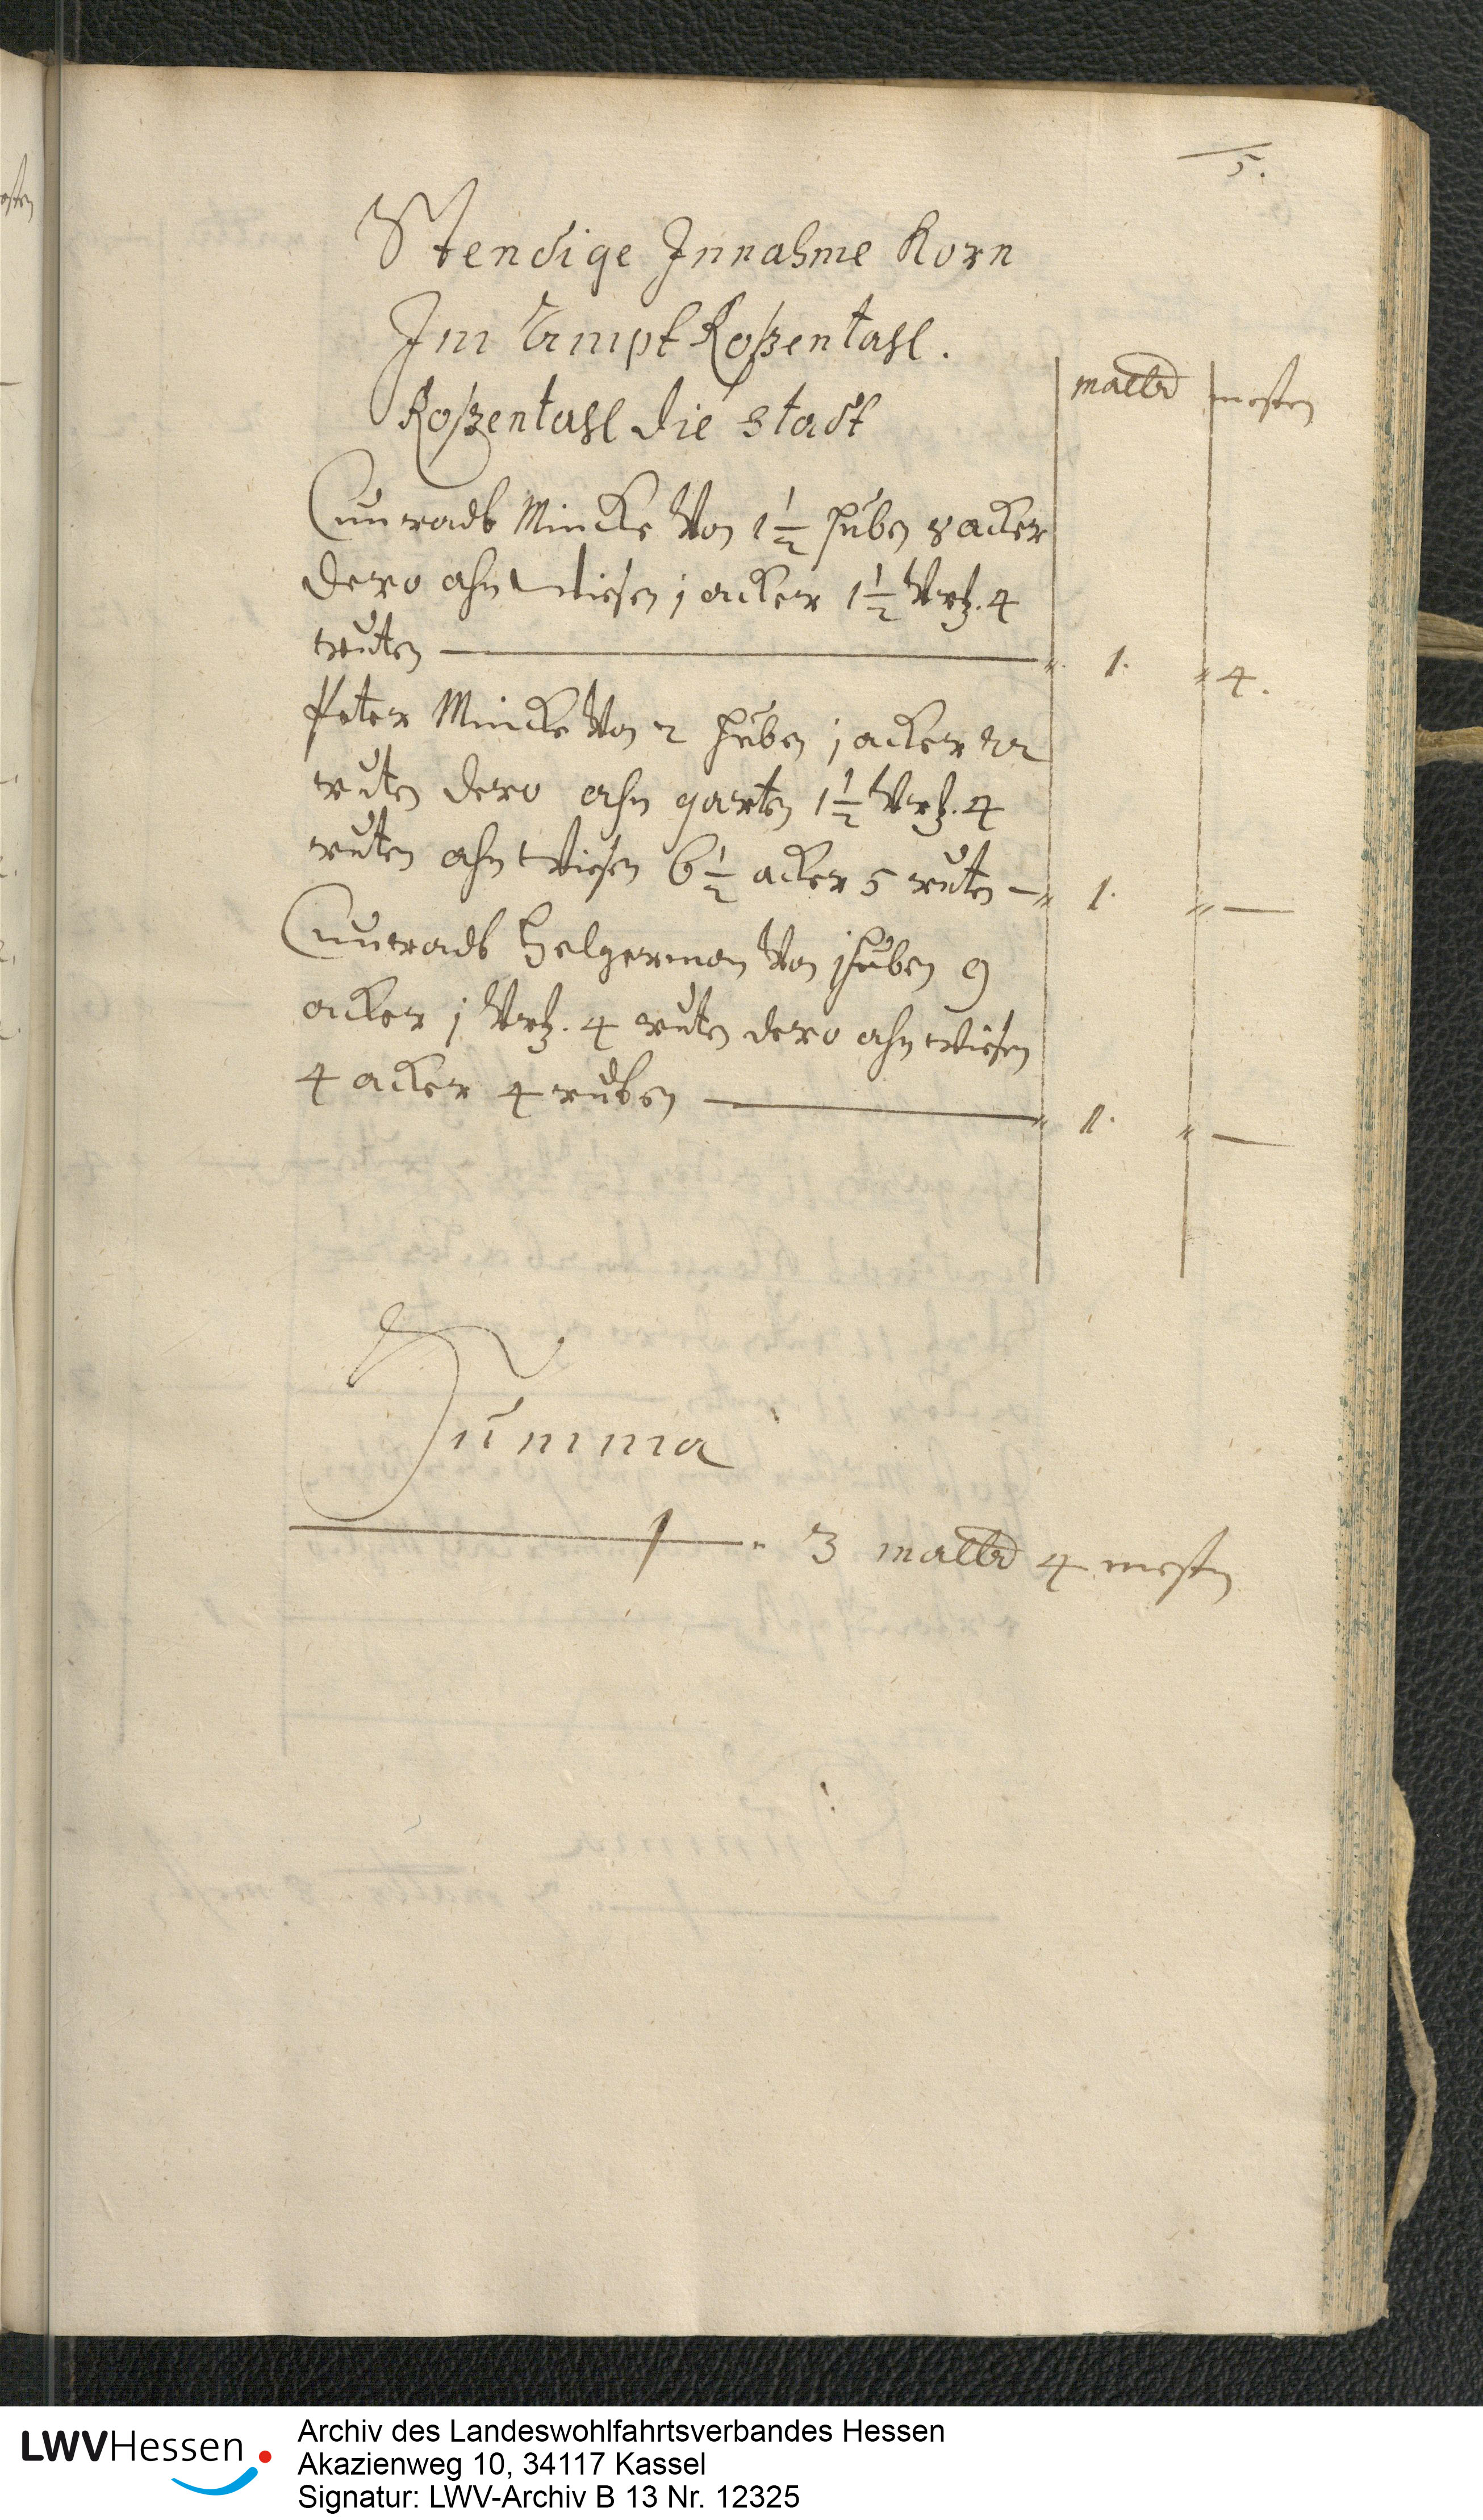 5.
Stendige Innahme Korn
Im Ampt Roßentahl.
Roßentahl die Stadt
maltr mesten
Cunradt Mincke Von 1 1/2 huben 8 acker
dero ahn wiesen j acker 1 1/2 Vrtz. 4
ruten 1. 4.
Peter Mincke Von 2 huben j acker 22
ruten dero ahn garten 1 1/2 Vrtz. 4
ruten ahn wiesen 6 1/2 acker 5 ruten 1. —
Cunradt Helgerman Von j huben 9
acker j Vrtz. 4 ruten dero ahn wiesen
4 acker 4 ruten 1. —
Summa
3 maltr 4 mesten
LWVHessen
Archiv des Landeswohlfahrtsverbandes Hessen
Akazienweg 10, 34117 Kassel
Signatur: LWV-Archiv B 13 Nr. 12325